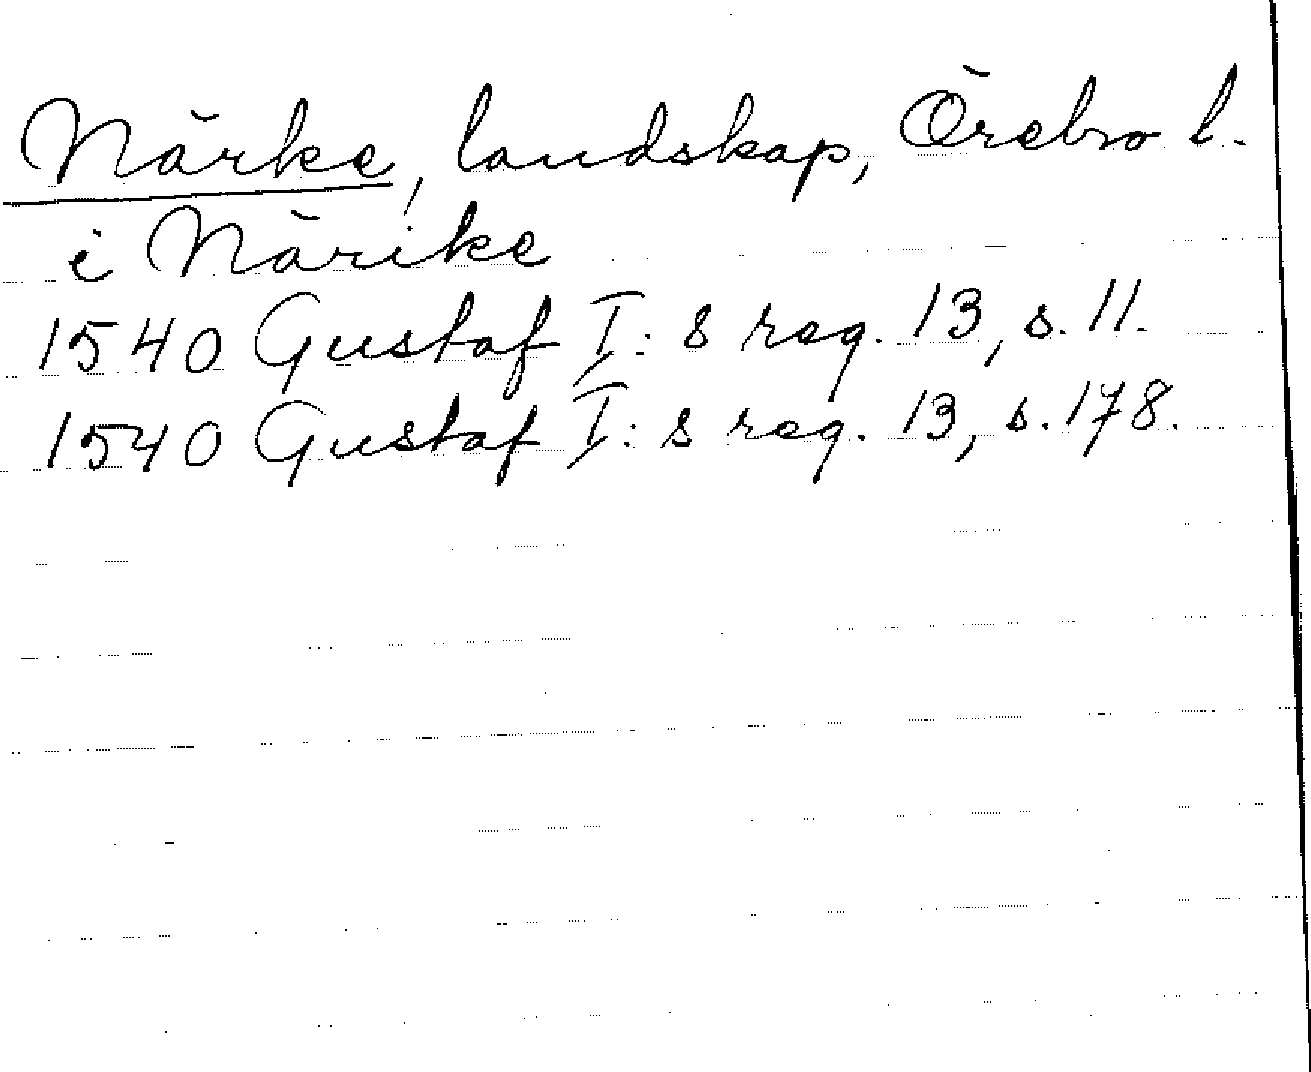 Närke, landskap, Örebro l.
i Närike
1540 Gustaf I:s reg. 13, s. 11.
1540 Gustaf I:s reg. 13, s. 178.